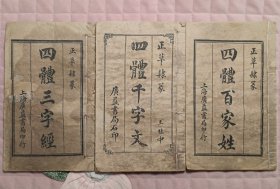 正草隸篆
四體三字經
上海廣益書局印行
正草隸篆
四體千字文
廣益書局石印
正草隸篆
四體百家姓
上海廣益書局印行